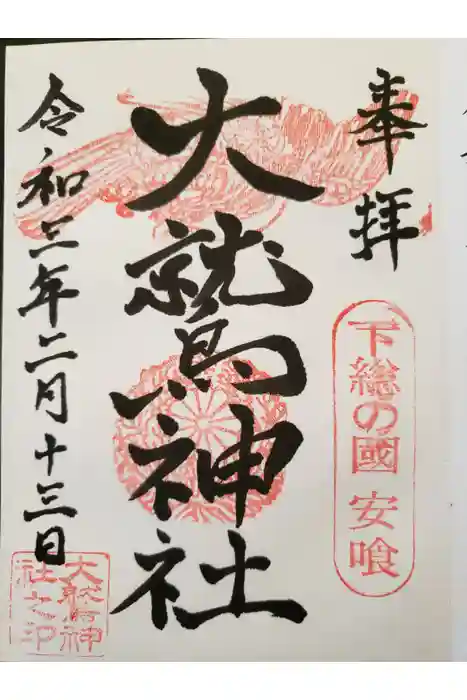 奉拝
下総の國 安喰
大鷲神社
令和三年二月十三日
大鷲神
社之印